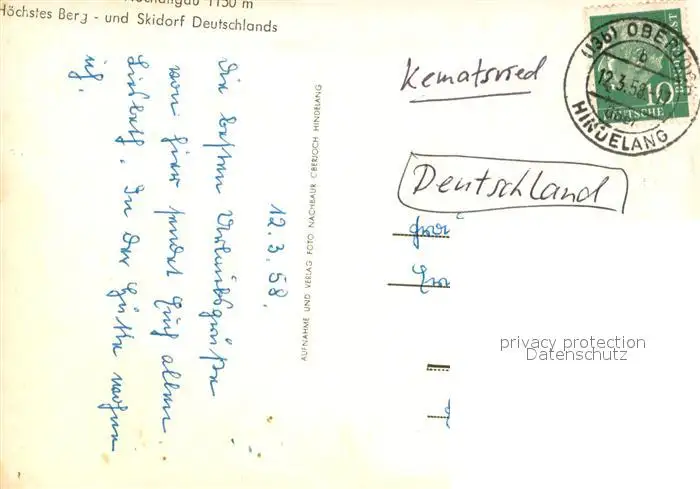 Hochallgäu 1150 m
Höchstes Berg - und Skidorf Deutschlands
12.3.58.
Die besten Urlaubsgrüße
von hier sendet Euch allen
Liesbeth. In der Hütte wohnen
ich.
AUFNAHME UND VERLAG FOTO NACHBAUR OBERJOCH HINDELANG
Kematsried
Deutschland
(13b) OBERJOCH
b
12.3.58
über
HINDELANG
10
DEUTSCHE
privacy protection
Datenschutz